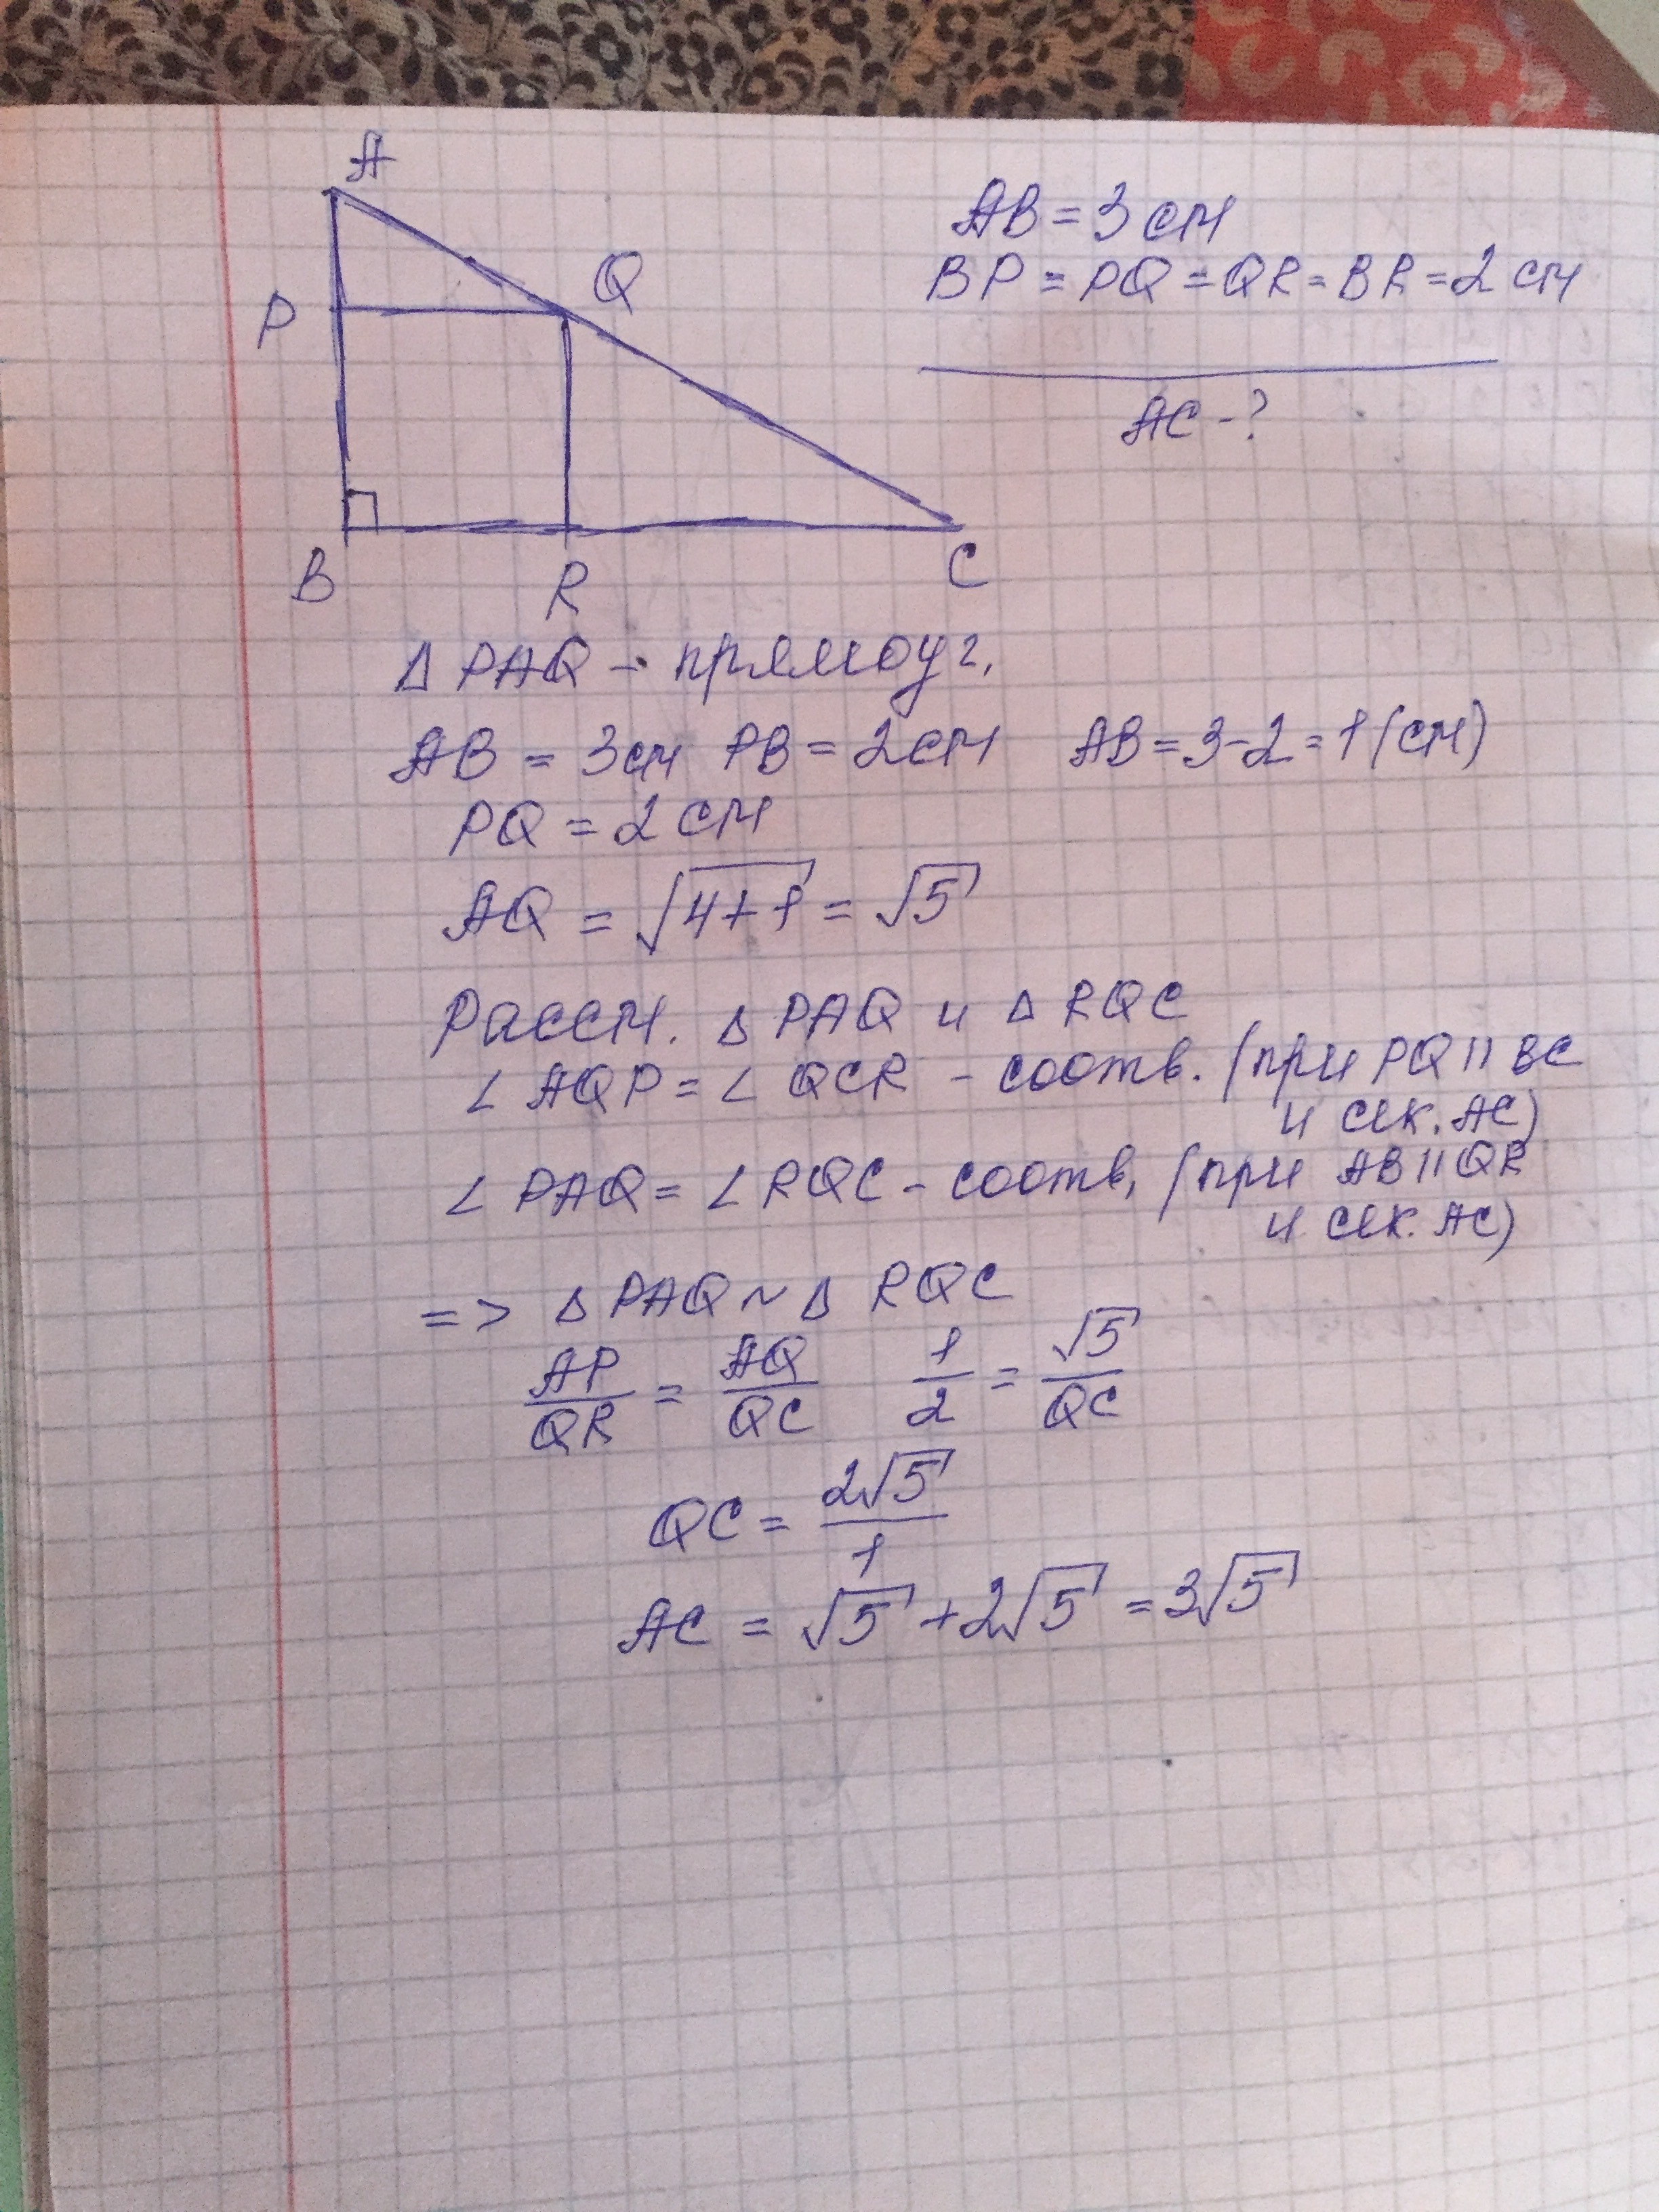 A
P
Q
B
R
C
AB = 3 см
BP = PQ = QR = BR = 2 см
AC - ?
Δ PAQ - прямоуг.
AB = 3см PB = 2см AB = 3-2 = 1 (см)
PQ = 2 см
AQ = √4+1 = √5
Рассм. Δ PAQ и Δ RQC
∠ AQP = ∠ QCR - соотв. (при PQ || BC
и сек. AC)
∠ PAQ = ∠ RQC - соотв. (при AB || QR
и сек. AC)
=> Δ PAQ ~ Δ RQC
AP/QR = AQ/QC 1/2 = √5/QC
QC = 2√5/1
AC = √5 + 2√5 = 3√5